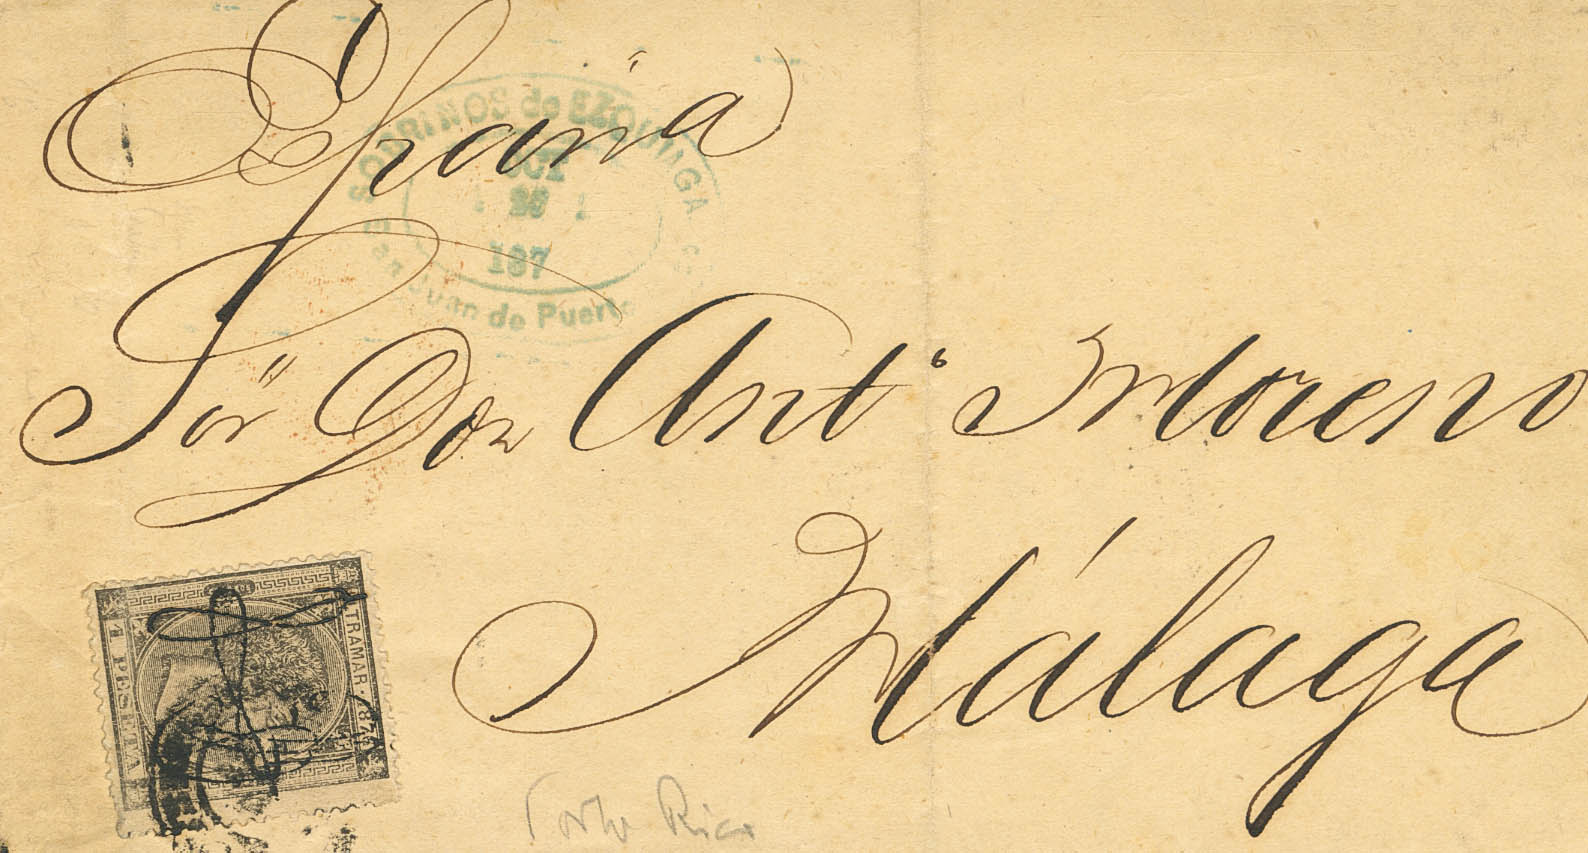 España
SOBRINOS de EZQUIAGA
OCT
26
187
San Juan de Puerto
Sor Don Anto Moreno
Málaga
ULTRAMAR 187
1 PESETA
Porto Rico